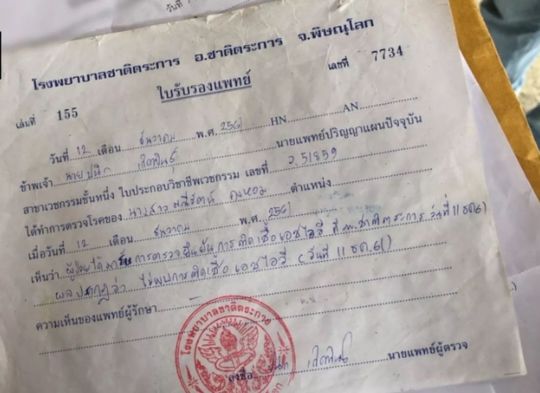 วันที่
โรงพยาบาลชาติตระการ อ.ชาติตระการ จ.พิษณุโลก
ใบรับรองแพทย์
เล่มที่ 155 เลขที่ 7734
วันที่ 12 เดือน ธันวาคม พ.ศ. 2561 HN AN
ข้าพเจ้า นาย นายแพทย์ปริญญาแผนปัจจุบัน
สาขาเวชกรรมชั้นหนึ่ง ใบประกอบวิชาชีพเวชกรรม เลขที่ ว.51859
ได้ทำการตรวจโรคของ นางสาว ตำแหน่ง
เมื่อวันที่ 12 เดือน ธันวาคม พ.ศ. 2561
เห็นว่า ผู้ป่วยได้มารับการตรวจยืนยันการติดเชื้อเอชไอวี ที่ รพ.ชาติตระการ วันที่ 11 ธค.61
ผลปรากฏว่า ไม่พบการติดเชื้อเอชไอวี (วันที่ 11 ธค.61)
ความเห็นของแพทย์ผู้รักษา
โรงพยาบาลชาติตระการ
ลงชื่อ นายแพทย์ผู้ตรวจ